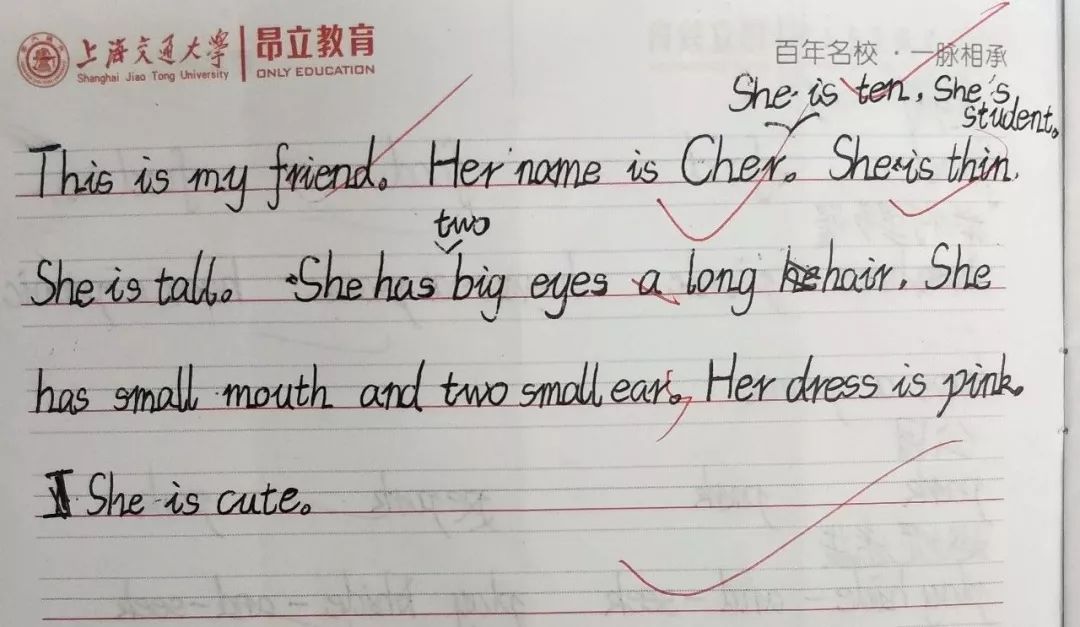 上海交通大学 昂立教育
Shanghai Jiao Tong University ONLY EDUCATION
百年名校·一脉相承
She is ten. She's
student.
This is my friend. Her name is Cher. She is thin.
two
She is tall. She has big eyes a long hair. She
has small mouth and two small ears. Her dress is pink.
She is cute.